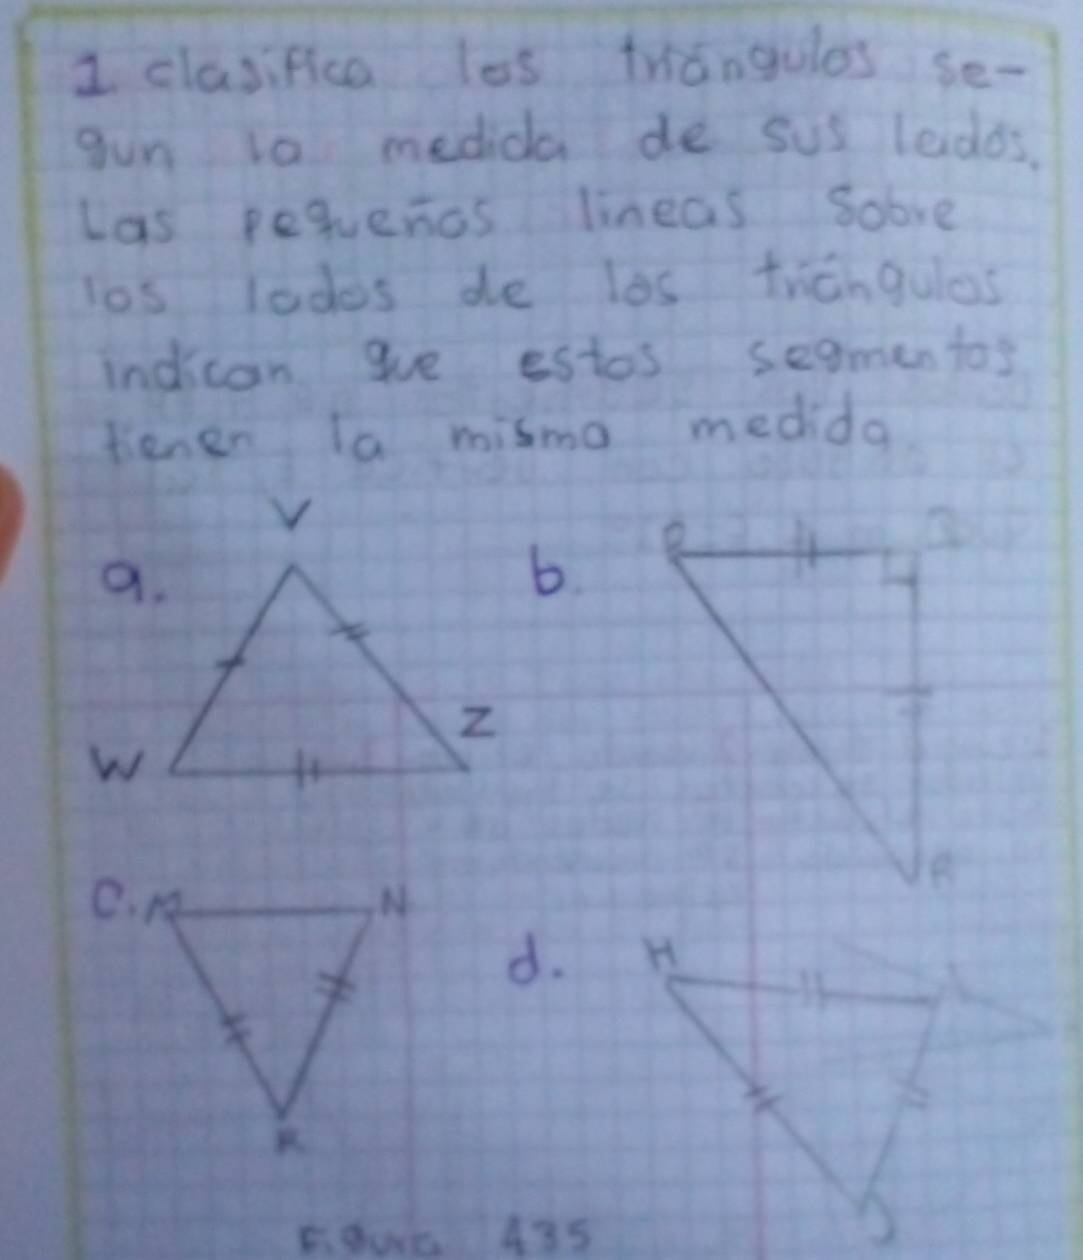 1 clasifica los triángulos se-
gun la medida de sus lados.
Las pequeños lineas sobre
los lados de los triángulos
indican que estos segmentos
tienen la misma medida
V
a.
b.
W
Z
R
C. M
N
d.
H
K
J
Figura 435